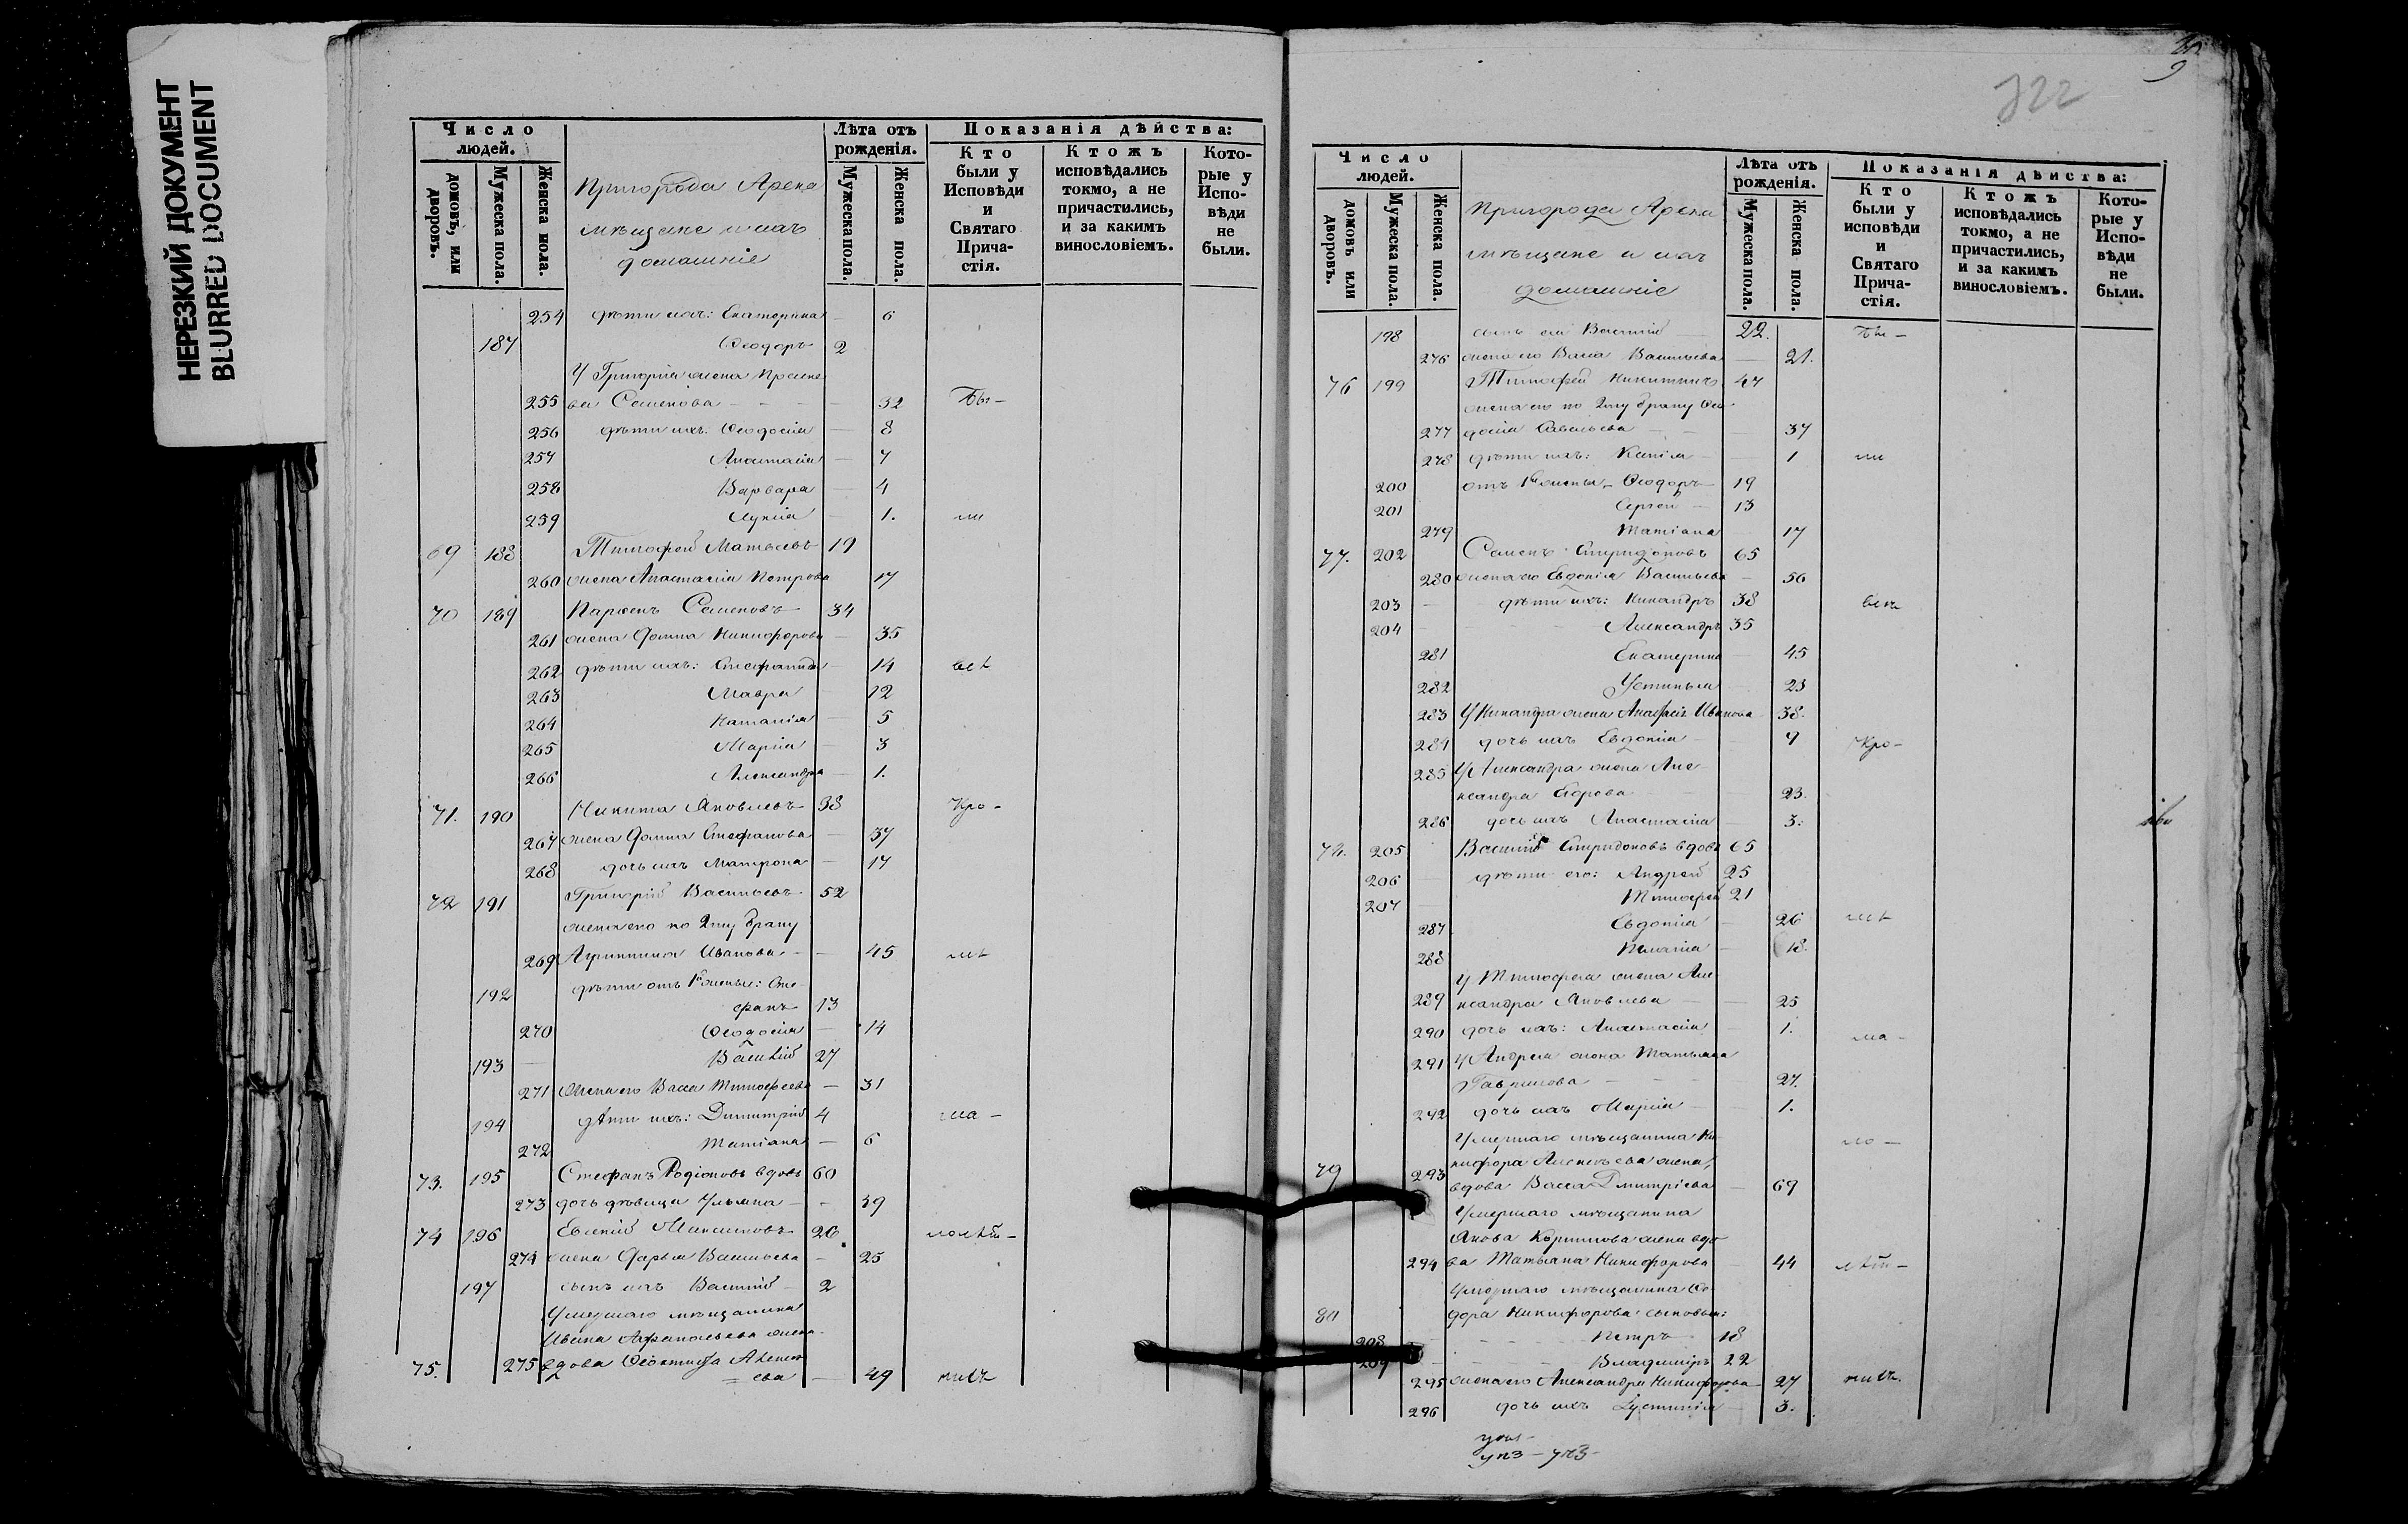 НЕРЕЗКИЙ ДОКУМЕНТ
BLURRED DOCUMENT
Число людей.
домовъ, или дворовъ.
Мужеска пола.
Женска пола.
Пригорода Арска
мѣщане и ихъ
домашніе
Лѣта отъ рожденія.
Мужеска пола.
Женска пола.
Показанія дѣйства:
Кто были у Исповѣди и Святаго Прича-стія.
Ктожъ исповѣдались токмо, а не причастились, и за какимъ винословіемъ.
Кото-рые у Испо-вѣди не были.
254 дѣти ихъ: Екатерина — 6
187 Ѳеодоръ 2
У Григорія жена
255 ва Семенова — 32 Бы-
256 дѣти ихъ: Ѳеодосія — 8
257 Анастасія — 7
258 Варвара — 4
259 — 1. ли
69 188 Тимофей Матвеевъ 19
260 жена Анастасія Петрова 17
70 189 Парѳенъ Семеновъ 34
261 жена Домна Никифорова — 35
262 дѣти ихъ: Стефанида — 14 всѣ
263 Мавра 12
264 Наталія — 5
265 Марія — 3
266 Александра — 1.
71. 190 Никита Яковлевъ 38 Кро-
267 жена Домна Стефанова — 37
268 дочь ихъ Матрона — 17
72 191 Григорій Васильевъ 52
жена его по 2му браку
269 Агрипина Иванова — 45 мѣ
192 дѣти отъ 1й жены: Сте-
фанъ 13
270 Ѳеодосія — 14
193 — Василій 27
271 Жена его Васса Тимофеева — 31
194 дѣти ихъ: Димитрій 4 ма -
272 Татіана — 6
73. 195 Стефанъ Родіоновъ вдовъ 60
273 дочь дѣвица Ульяна — 39
74 196 Евгеній Максимовъ 26. лолѣт-
274 жена Дарья Васильева — 25
197 сынъ ихъ Василій — 2
Умершаго мѣщанина
Ивана Афанасьева жена
75. 275 вдова Ѳеоктиста Алексѣ
= ева — 49 нихъ
322
9
Число людей.
домовъ или дворовъ.
Мужеска пола.
Женска пола.
Пригорода Арска
мѣщане и ихъ
домашніе
Лѣта отъ рожденія.
Мужеска пола.
Женска пола.
Показанія дѣйства:
Кто были у исповѣди и Святаго Прича-стія.
Ктожъ исповѣдались токмо, а не причастились, и за какимъ винословіемъ.
Кото-рые у Испо-вѣди не были.
198 сынъ ея Василій 22. Бы-
276 жена его Васса Васильева — 21.
76 199 Тимофей Никитинъ 47
жена его по 2му браку Ѳео
277 досія Савельева — 37
278 дѣти ихъ: Ксенія — 1 ли
200 отъ 1й жены - Ѳеодоръ 19
201 Сергей 13
279 Татіана 17
77. 202 Семенъ Спиридоновъ 65
280 жена его Евдокія Васильева — 56
203 — дѣти ихъ: Никандръ 38 всѣ
204 — Александръ 35
281 Екатерина 45
282 Устинья 23
283 У Никандра жена Анастасія Иванова 38.
284 дочь ихъ Евдокія — 9 Кро-
285 У Александра жена Але-
ксандра Егорова — 23.
286 дочь ихъ Анастасія 3.
72. 205 Василій Спиридоновъ вдовъ 65
206 — дѣти его: Андрей 25
207 — Тимофей 21
287 Евдокія — 26 мѣ
288 Пелагія — 18.
У Тимофея жена Але-
289 ксандра Яковлева — 25
290 дочь ихъ: Анастасія 1.
ма -
291 У Андрея жена Татьяна
Гаврилова — 27.
292 дочь ихъ Марія — 1.
Умершаго мѣщанина Ни- ло —
79 293 кифора Алексѣева жена,
вдова Васса Дмитріева — 69
Умершаго мѣщанина
Якова Кирилова жена вдо
294 ва Татьяна Никифорова 44 лѣт-
Умершаго мѣщанина Ѳео
80 дора Никифорова сыновья:
208 — Петръ 18
209 — Владиміръ 22
295 жена его Александра Никифорова 27 нихъ.
296 дочь ихъ Іустинія 3.